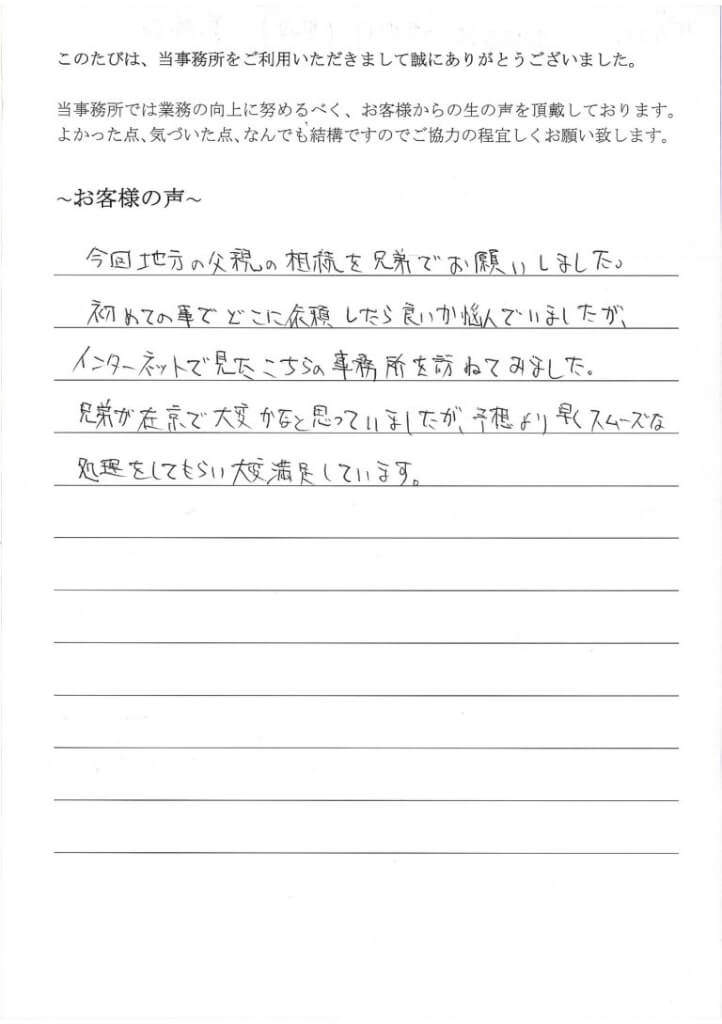 このたびは、当事務所をご利用いただきまして誠にありがとうございました。
当事務所では業務の向上に努めるべく、お客様からの生の声を頂戴しております。
よかった点、気づいた点、なんでも結構ですのでご協力の程宜しくお願い致します。
~お客様の声~
今回地方の父親の相続を兄弟でお願いしました。
初めての事でどこに依頼したら良いか悩んでいましたが、
インターネットで見たこちらの事務所を訪ねてみました。
兄弟が在京で大変かなと思っていましたが、予想より早くスムーズな
処理をしてもらい大変満足しています。